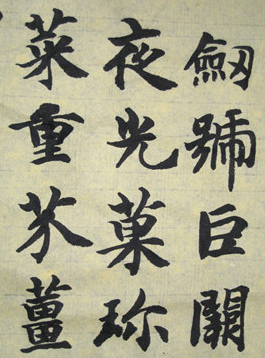 劔號巨闕
夜光菓珎
菜重芥薑